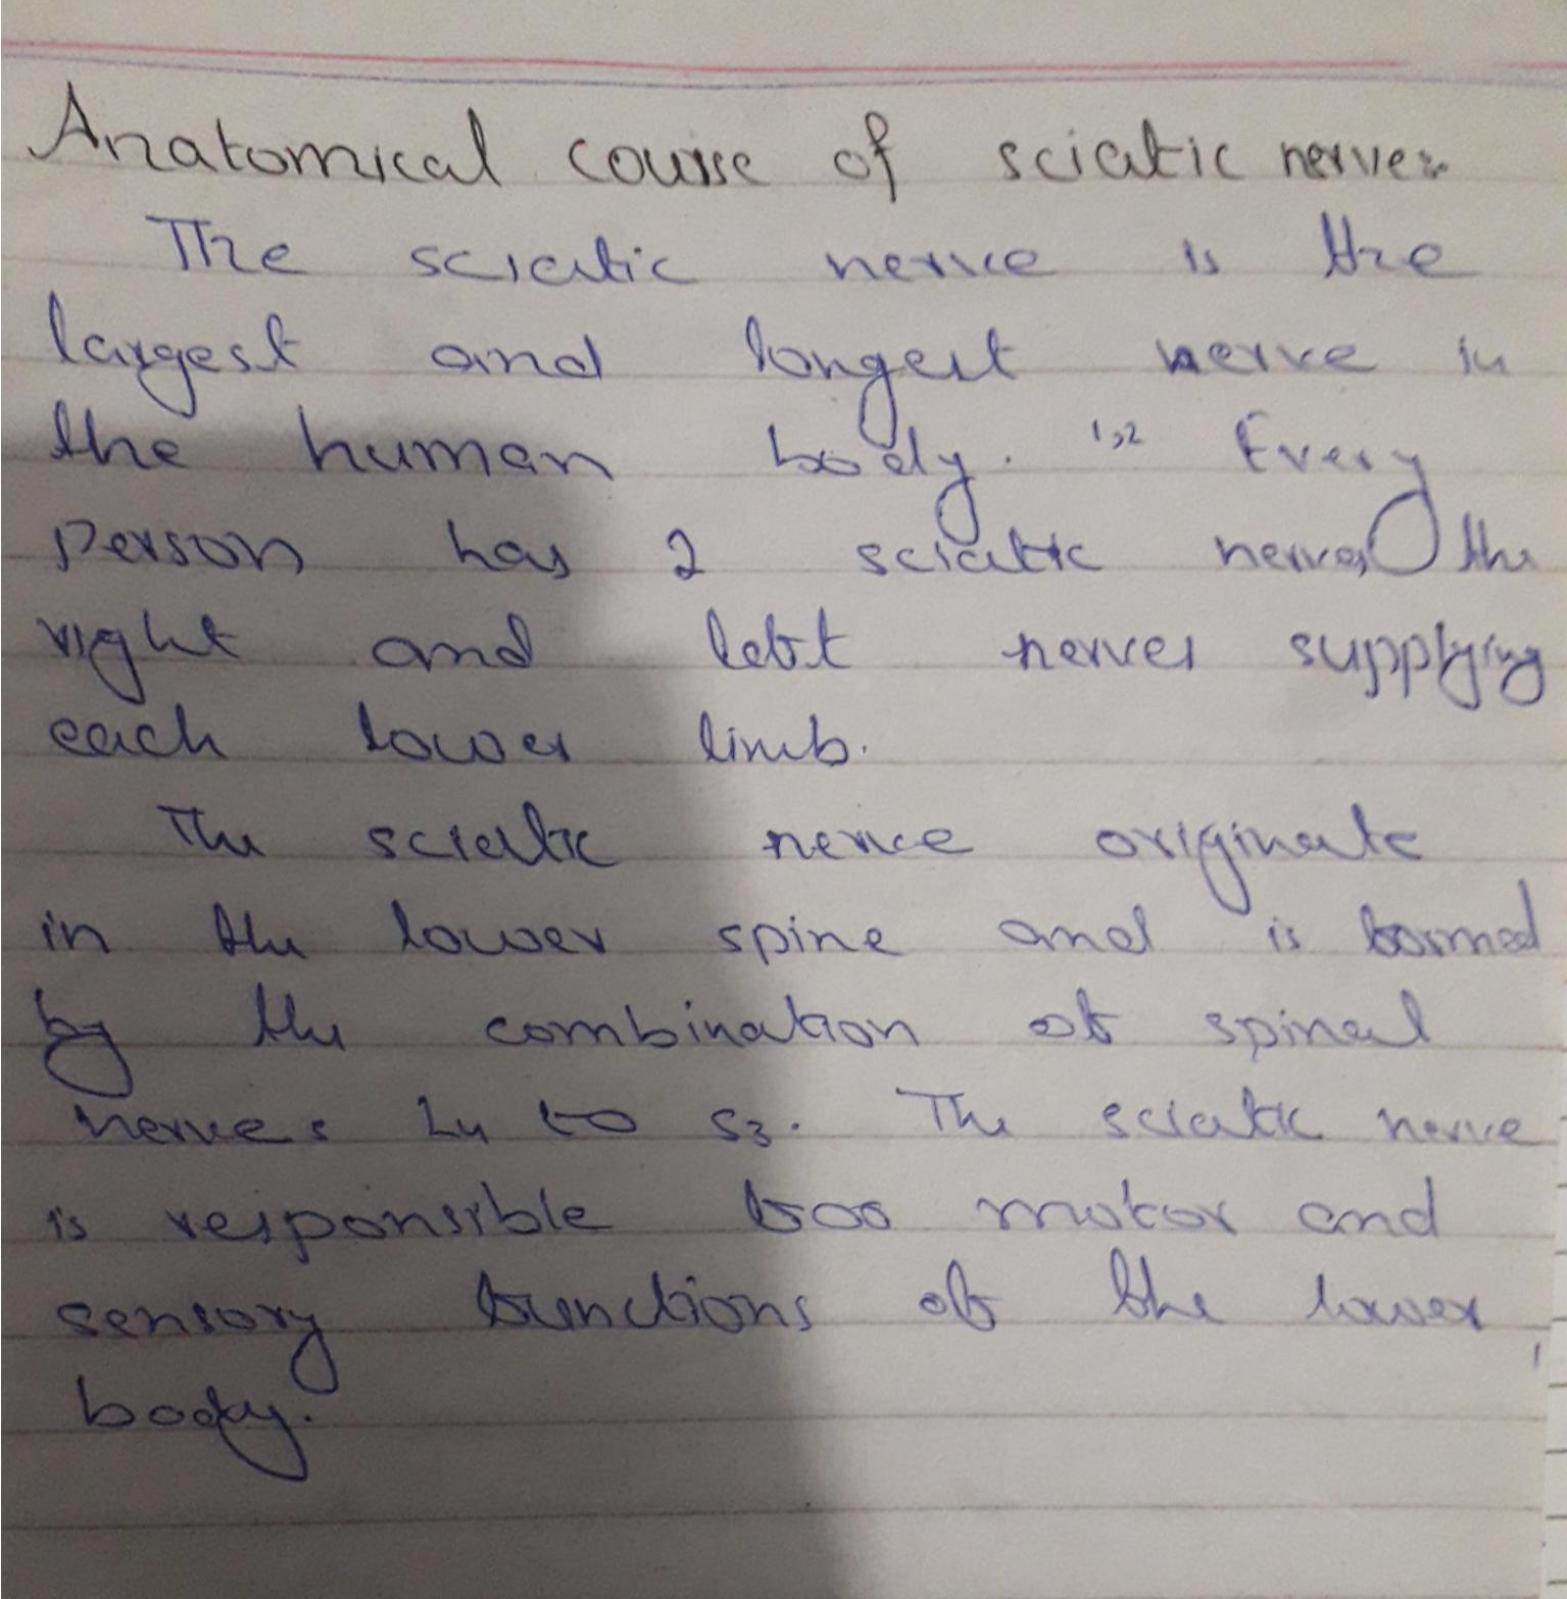 Anatomical course of sciatic nerve:-
The sciatic nerve is the
largest and longest nerve in
the human body. 1,2 Every
person has 2 sciatic nerves, the
right and left nerves supplying
each lower limb.
The sciatic nerve originate
in the lower spine and is formed
by the combination of spinal
nerves L4 to S3. The sciatic nerve
is responsible for motor and
sensory functions of the lower
body.